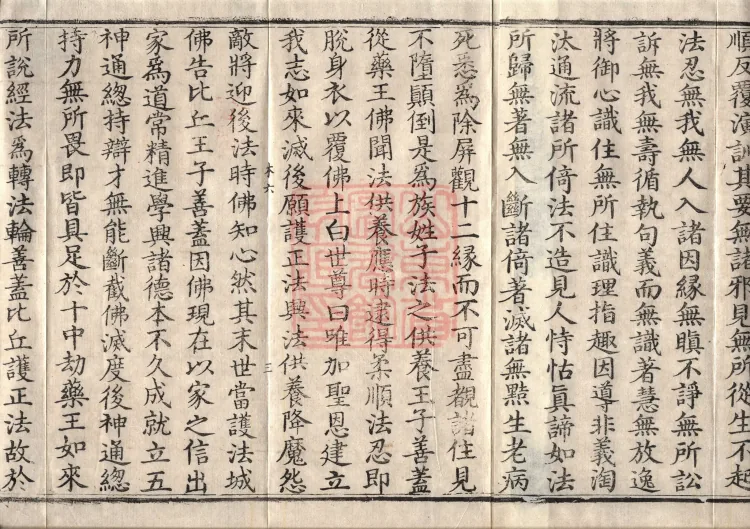 順反覆演訓其要無諸邪見無所從生不起
法忍無我無人入諸因緣無瞋不諍無所訟
訴無我無壽循執句義而無識著慧無放逸
將御心識住無所住識理指趣因導非義淘
汰通流諸所倚法不造見人恃怙真諦如法
所歸無著無入斷諸倚著滅諸無黠生老病
死悉為除屏觀十二緣而不可盡覩諸住見
不墮顛倒是為族姓子法之供養王子善蓋
從藥王佛聞法供養應時逮得柔順法忍即
脫身衣以覆佛上白世尊曰唯加聖恩建立
我志如來滅後願護正法興法供養降魔怨
末六
三
敵將迎後法時佛知心然其末世當護法城
佛告比丘王子善蓋因佛現在以家之信出
家為道常精進學興諸德本不久成就立五
神通總持辯才無能斷截佛滅度後神通總
持力無所畏即皆具足於十中劫藥王如來
所說經法為轉法輪善蓋比丘護正法故於